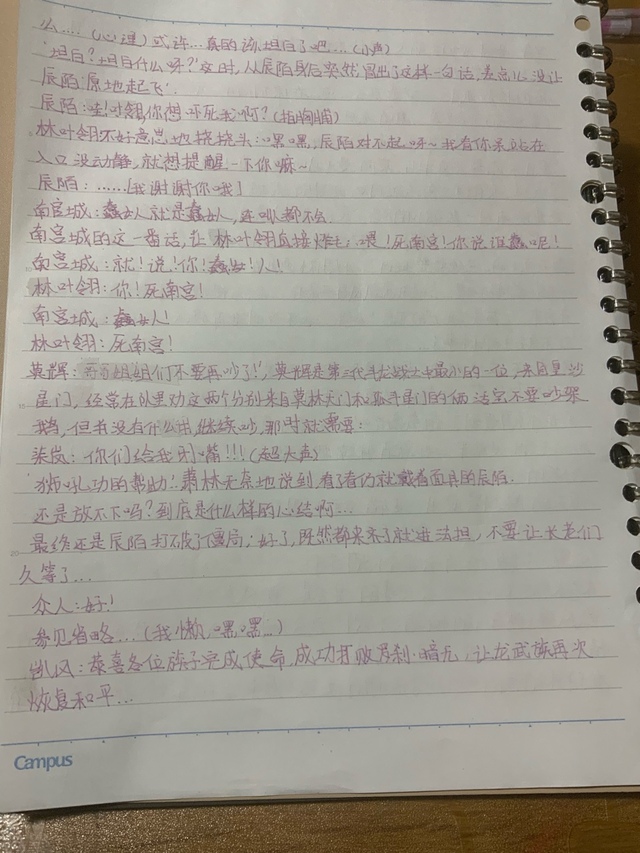 么....(心理)或许...真的该坦白了吧...(小声)
'坦白?坦白什么呀?'这时,从辰陌身后突然冒出了这样一句话,差点儿没让
辰陌'原地起飞'.
辰陌:林叶翎你想吓死我啊?(拍胸脯)
林叶翎不好意思地挠挠头:嘿嘿,辰陌对不起呀~我看你呆站在
入口没动静,就想提醒一下你嘛~
辰陌:......「我谢谢你哦」
南宫城:蠢女人就是蠢女人,连 都不会.
南宫城的这一番话,让 林叶翎直接炸毛:喂!死南宫!你说谁蠢呢!
南宫城:就!说!你!蠢女!人!
林叶翎:你!死南宫!
南宫城:蠢女人!
林叶翎:死南宫!
莫辉:哥哥姐姐们不要再吵了!',莫辉是第三代 龙战士中最小的一位,来自里沙
星门,经常在队里劝这两个分别来自 林天门和 星门的俩活宝不要吵架
,但书没有什么出,继续吵,那时就需要:
柒岚:你们给我闭嘴!!!(超大声)
'狮吼功'的帮助!萧林无奈地说到,看了看仍就戴着面具的辰陌.
还是放不下吗?到底是什么样的心结啊...
最终还是辰陌打破了僵局:好了,既然都来齐了就进去把,不要让长老们
久等了...
众人:好!
参见省略...(我懒,嘿嘿...)
风:恭喜各位族子完成使命,成功打败罗刹·暗尢,让龙武族再次
恢复和平...
Campus